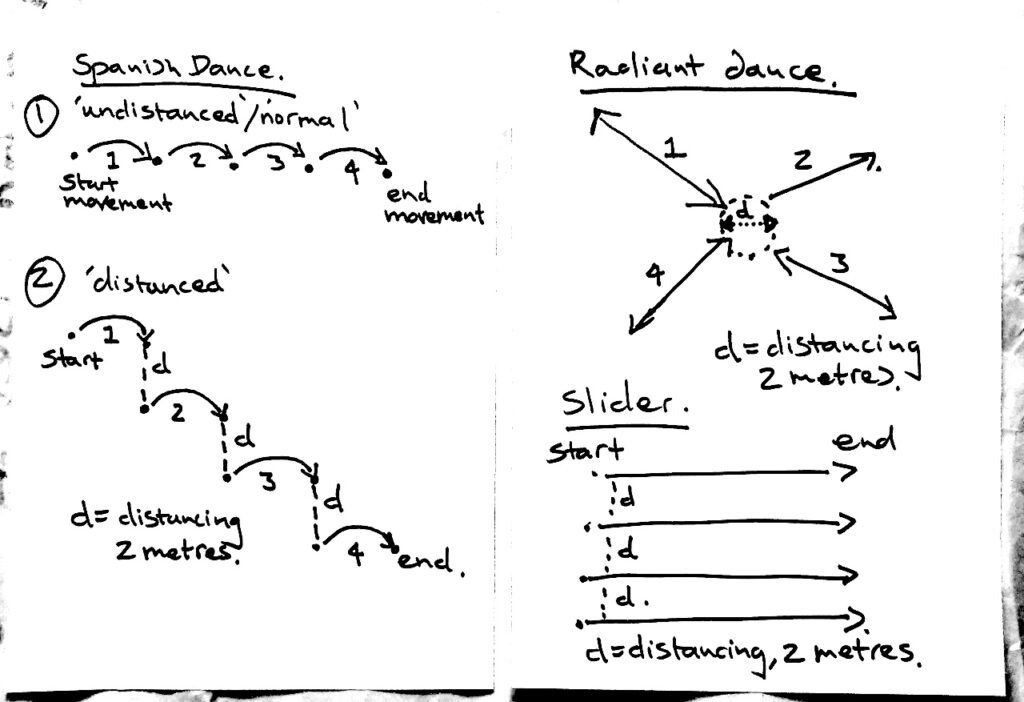 Spanish Dance.
① 'undistanced'/'normal'
1 2 3 4
start
movement
end
movement
② 'distanced'
1
start
d
2
d
3
d
4
end.
d = distancing
2 metres.
Radiant dance.
1
2
d
3
4
d = distancing
2 metres.
Slider.
start
end
d
d
d.
d = distancing, 2 metres.